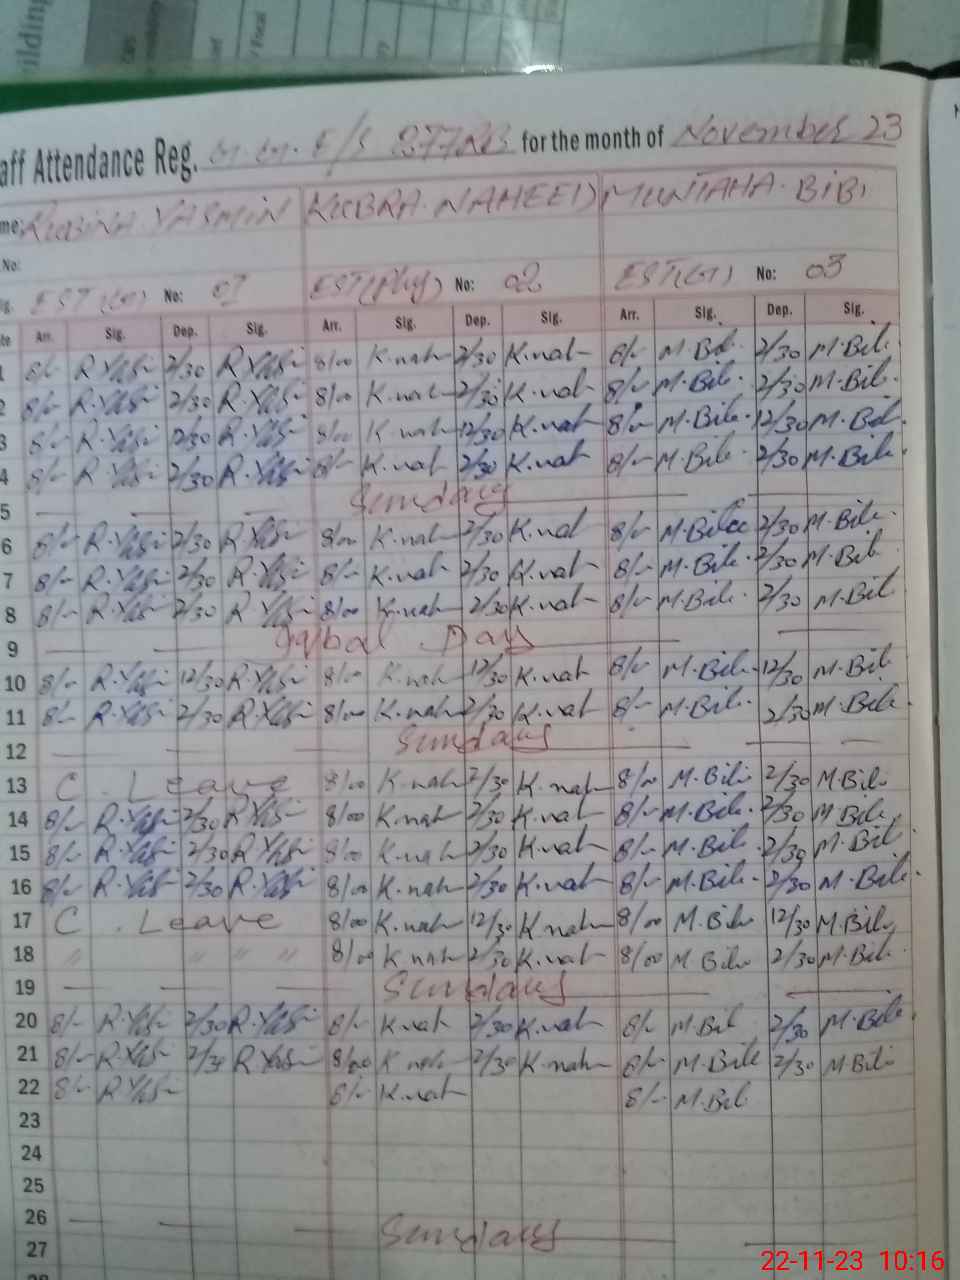 ilding
aff Attendance Reg. E/S 877RB for the month of November 23
me: RUBINA YASMIN KUBRA NAHEED MUNTAHA BIBI
No:
g. EST(G) No: 01 EST(Phy) No: 02 EST(G) No: 03
te Arr. Sig. Dep. Sig. Arr. Sig. Dep. Sig. Arr. Sig. Dep. Sig.
1 8/- R.Yasi 2/30 R.Yasi 8/00 K.nah 2/30 K.nah 8/- M.Bibi 2/30 M.Bibi
2 8/- R.Yasi 2/30 R.Yasi 8/00 K.nah 2/30 K.nah 8/- M.Bibi 2/30 M.Bibi
3 8/- R.Yasi 12/30 R.Yasi 8/00 K.nah 12/30 K.nah 8/- M.Bibi 12/30 M.Bibi
4 8/- R.Yasi 2/30 R.Yasi 8/- K.nah 2/30 K.nah 8/- M.Bibi 2/30 M.Bibi
5 Sunday
6 8/- R.Yasi 2/30 R.Yasi 8/00 K.nah 2/30 K.nah 8/- M.Bibi 2/30 M.Bibi
7 8/- R.Yasi 2/30 R.Yasi 8/- K.nah 2/30 K.nah 8/- M.Bibi 2/30 M.Bibi
8 8/- R.Yasi 2/30 R.Yasi 8/00 K.nah 2/30 K.nah 8/- M.Bibi 2/30 M.Bibi
9 Iqbal Day
10 8/- R.Yasi 12/30 R.Yasi 8/00 K.nah 12/30 K.nah 8/- M.Bibi 12/30 M.Bibi
11 8/- R.Yasi 2/30 R.Yasi 8/00 K.nah 2/30 K.nah 8/- M.Bibi 2/30 M.Bibi
12 Sunday
13 C Leave 8/00 K.nah 2/30 K.nah 8/00 M.Bibi 2/30 M.Bibi
14 8/- R.Yasi 2/30 R.Yasi 8/00 K.nah 2/30 K.nah 8/- M.Bibi 2/30 M.Bibi
15 8/- R.Yasi 2/30 R.Yasi 8/00 K.nah 2/30 K.nah 8/- M.Bibi 2/30 M.Bibi
16 8/- R.Yasi 2/30 R.Yasi 8/00 K.nah 2/30 K.nah 8/- M.Bibi 2/30 M.Bibi
17 C. Leave 8/00 K.nah 12/30 K.nah 8/00 M.Bibi 12/30 M.Bibi
18 " " " " 8/00 K.nah 2/30 K.nah 8/00 M.Bibi 2/30 M.Bibi
19 Sunday
20 8/- R.Yasi 2/30 R.Yasi 8/- K.nah 2/30 K.nah 8/- M.Bibi 2/30 M.Bibi
21 8/- R.Yasi 2/30 R.Yasi 8/00 K.nah 2/30 K.nah 8/- M.Bibi 2/30 M.Bibi
22 8/- R.Yasi 8/- K.nah 8/- M.Bibi
23
24
25
26 Sunday
27
22-11-23 10:16